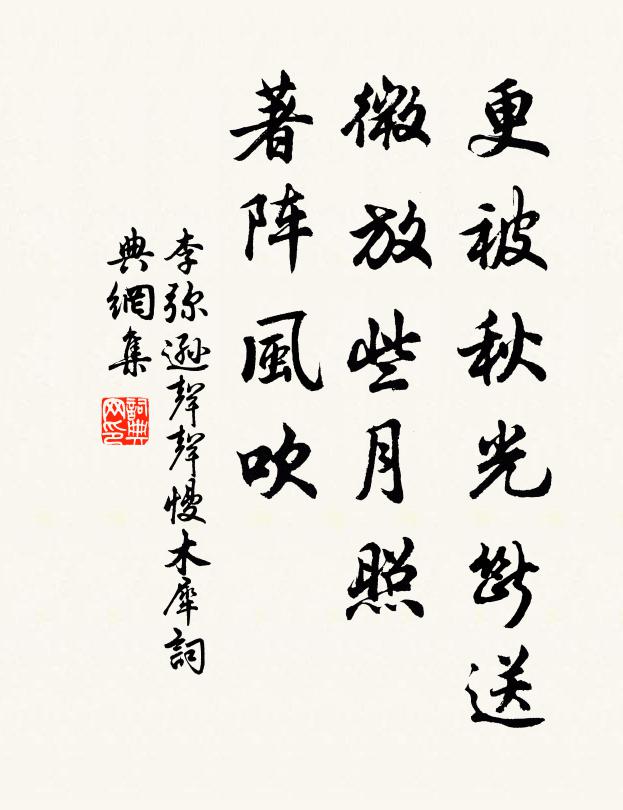 更被秋光断送
微放些月照
著阵風吹
李弥遜聲聲慢木犀詞
典網集
詞典
网印